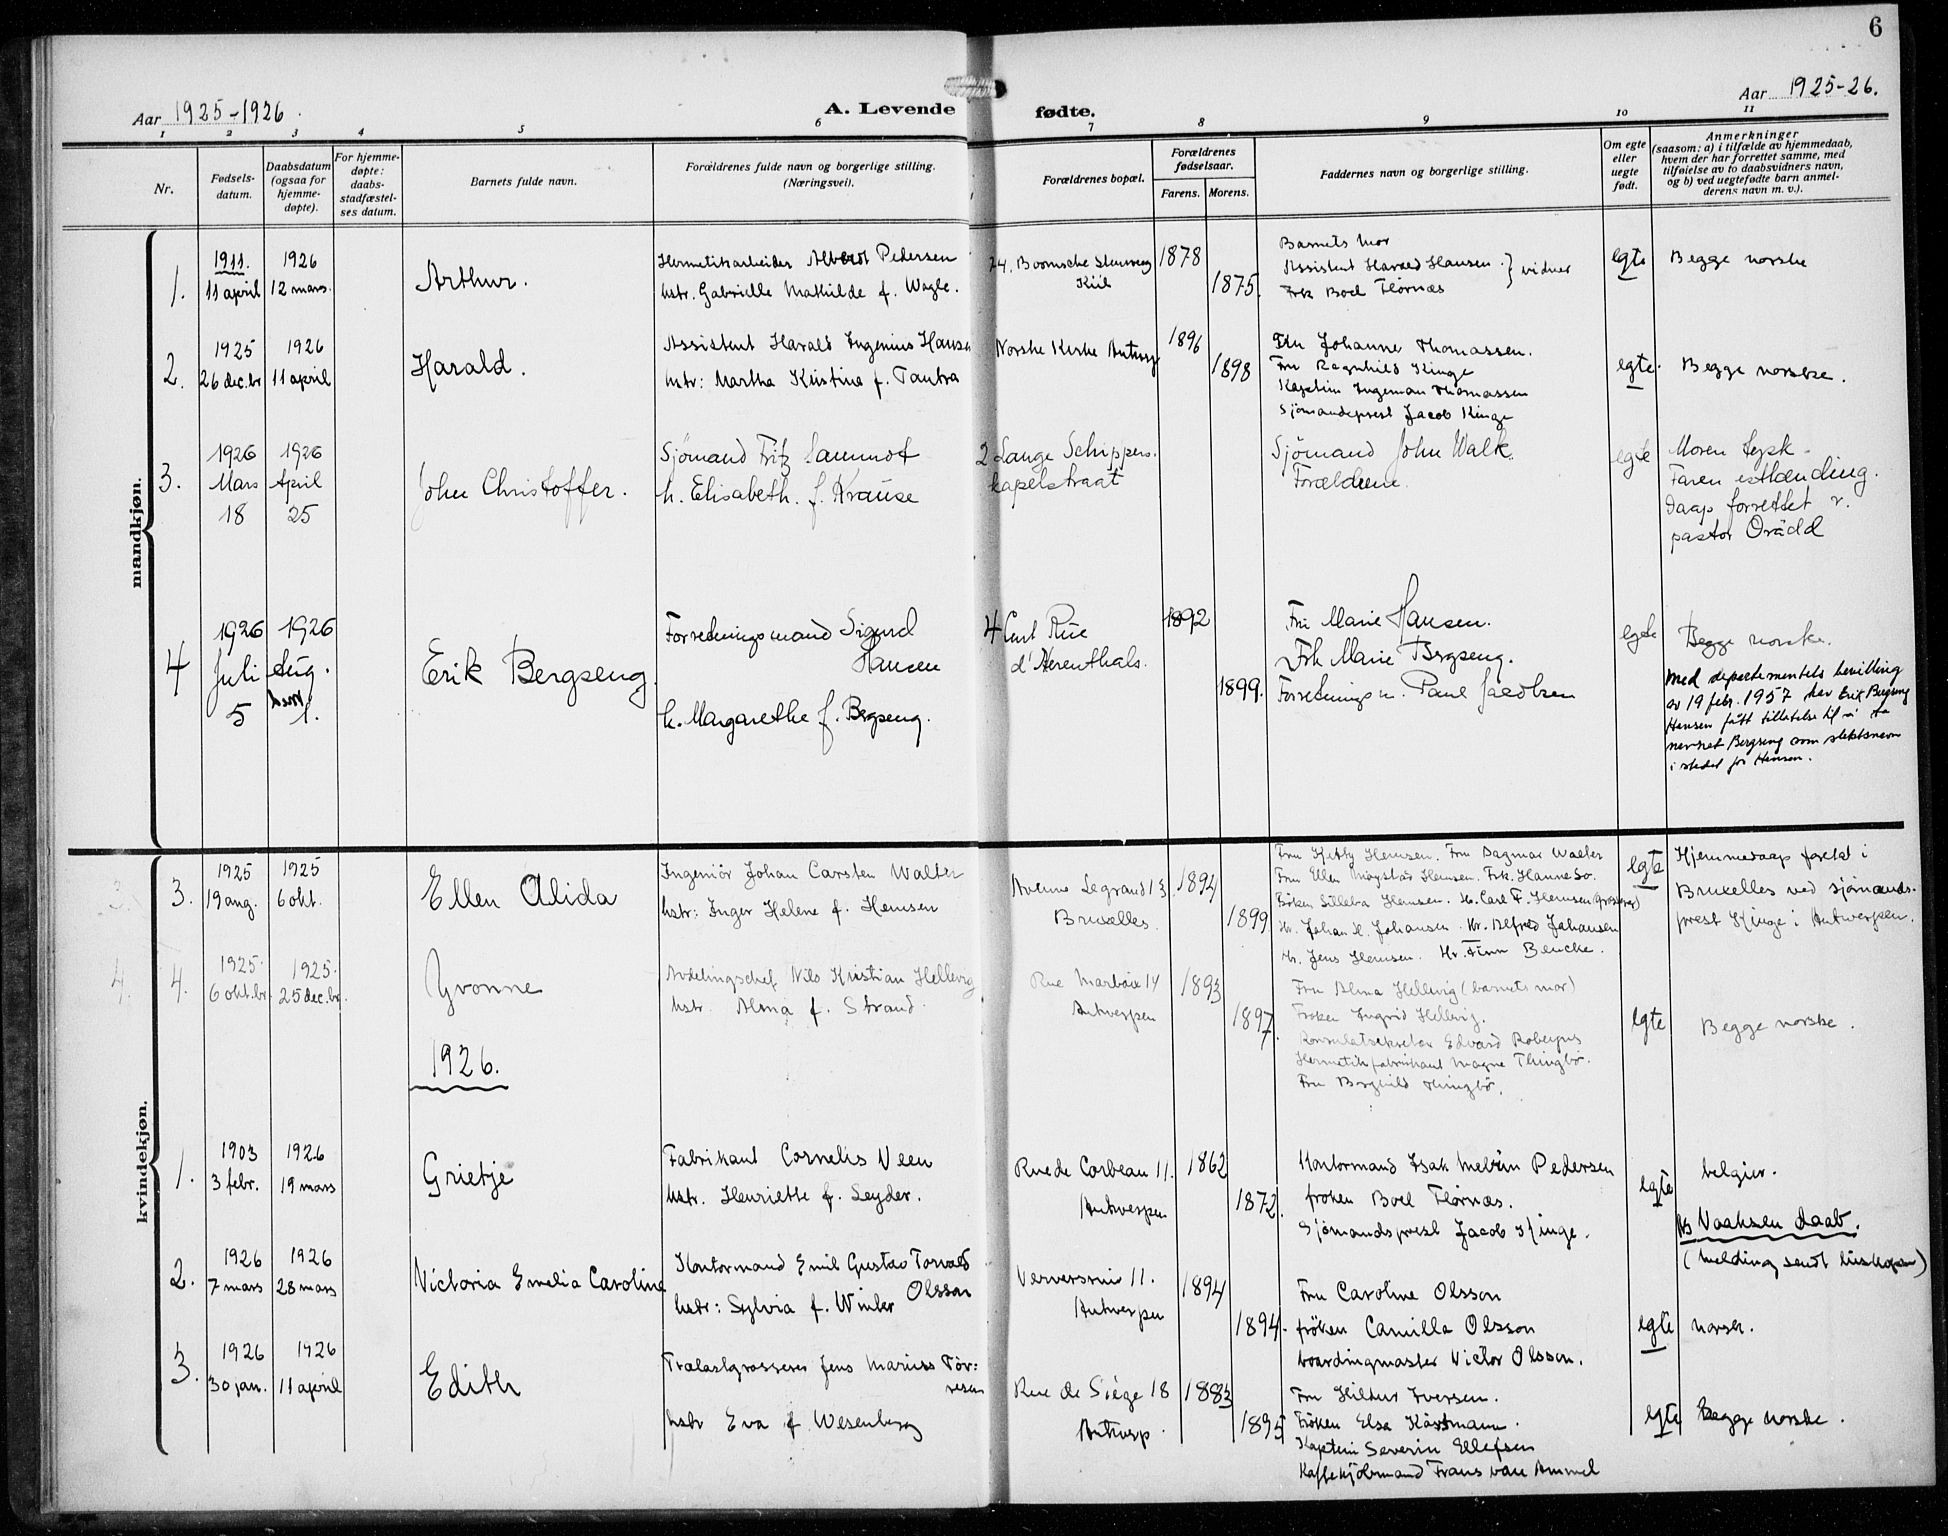 6
Aar 1925-1926.
A. Levende fødte.
Aar 1925-26.
1 2 3 4 5 6 7 8 9 10 11
Nr.
Fødsels-
datum.
Daabsdatum
(ogsaa for
hjemme-
døpte).
For hjemme-
døpte:
daabs-
stadfæstel-
ses datum.
Barnets fulde navn.
Forældrenes fulde navn og borgerlige stilling.
(Næringsvei).
Forældrenes bopæl.
Forældrenes
fødselsaar.
Farens. Morens.
Faddernes navn og borgerlige stilling.
Om egte
eller
uegte
født.
Anmerkninger
(saasom: a) i tilfælde av hjemmedaab,
hvem der har forrettet samme, med
tilføielse av to daabsvidners navn,
og b) ved uegtefødte barn anmel-
derens navn m. v.).
mandkjøn.
1.
1911.
11 april
1926
12 mars.
Arthur.
Hermetikarbeider Albert Pedersen
hstr. Gabrielle Mathilde f. Wagle.
24. Boomsche Steenweg
Kiil
1878
1875.
Barnets mor
Assistent Harald Hansen.
Frk Boel Flörnæs
} vidner
egte
Begge norske
2.
1925
26 dec.br
1926
11 april
Harald.
Assistent Harald Ingenius Hansen
hstr: Martha Kristina f. Tautra
Norske Kirke Antwp
1896
1898
Fru Johanne Thomassen.
Fru Ragnhild Kinge
Kaptein Ingeman Thomassen
Sjömandsprest Jacob Kinge
egte.
Begge norske.
3.
1926
Mars
18
1926
April
25
John Christoffer.
Sjömand Fritz
h. Elisabeth. f. Krause
2 Lange Schippers.
kapelstraat
Sjömand John Walk.
Forældrene.
egte
Moren tysk.
Faren estlænding.
Daap forrettet v.
pastor Orädd
4
1926
Juli
5
1926
Aug.
1.
Erik Bergseng.
Forretningsmand Sigurd
Hansen
h. Margarethe f. Bergseng.
4 Rue
d'Herenthals.
1892
1899.
Fru Marie Hansen.
Frk Marie Bergseng.
Forretningsm. Paul Jacobsen
egte
Begge norske.
Med departementets bevilling
av 19 febr. 1957 har Erik Bergseng
Hansen fått tillatelse til å ta
navnet Bergseng som slektsnavn
i stedet for Hansen.
kvindekjøn.
3.
1925
19 aug.
1925
6 okt.
Ellen Alida
Ingeniör Johan Carsten Walter
hstr: Inger Helene f. Hemsen
Avenue Legrand 13
Bruxelles.
1894
1899
Fru Hetty Hemsen. Fru Dagmar Walter
Fru Ellen Mogstad Hemsen. Frk. Hanne So.
Fröken Hemsen. Hr. Carl F. Hemsen (grosserer)
Hr. Johan H. Johansen. Hr. Alfred Johansen
Hr. Jens Hemsen. Hr. Finn Bencke.
egte
Hjemmedaap foretat i
Bruxelles ved sjömands-
prest Kjinge i Antwerpen.
4.
4.
1925.
6 okt.br.
1925.
25 dec.br.
Yvonne
Avdelingschef Nils Kristian Hellevig
hstr. Alma f. Strand.
Rue Marbaix 14
Antwerpen
1893
1897.
Fru Alma Hellevig (barnets mor)
Fröken Ingrid Hellevig.
Konsulatsekretær Edvard
Hermetikfabrikant Magne Thingbö.
Fru Borghild Thingbö.
egte
Begge norske.
1926.
1.
1903
3 febr.
1926
19 mars
Grietje
Fabrikant Cornelis Veen
hstr. Henriette f. Seyder.
Rue de Corbeau 11.
Antwerpen
1862
1872.
Kontormand Isak Melvin Pedersen
fröken Boel Flörnæs.
Sjömandsprest Jacob Kjinge.
egte
belgier.
NB Voaksen daab.
(melding sendt biskopen)
2.
1926
7 mars
1926
28 mars
Victoria Emelia Caroline
Kontormand Emil Gustav Torvald
Olsson
hstr: Sylvia f. Winter
Verversrui 11.
Antwerpen
1894
1894.
Fru Caroline Olsson
fröken Camilla Olsson
boardingmaster Victor Olsson.
egte
norsk.
3.
1926
30 jan.
1926
11 april
Edith
Trælastgrosserer Jens Marius Tör-
resen
hstr Eva f Wesenberg
Rue de Siége 18
Antwerp.
1883
1895
Fru Hildur Iversen.
Fröken Elsa Kästmann.
Kaptein Severin Ellefsen
Kaffehjölmand Frans van Ammel
egte
Begge norske.